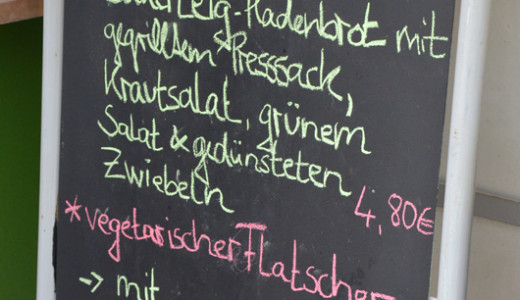 Sauerteig-Fladenbrot mit
gegrilltem Presssack,
Krautsalat, grünem
Salat & gedünsteten
Zwiebeln 4,80€
*vegetarischer Flatscher
→ mit